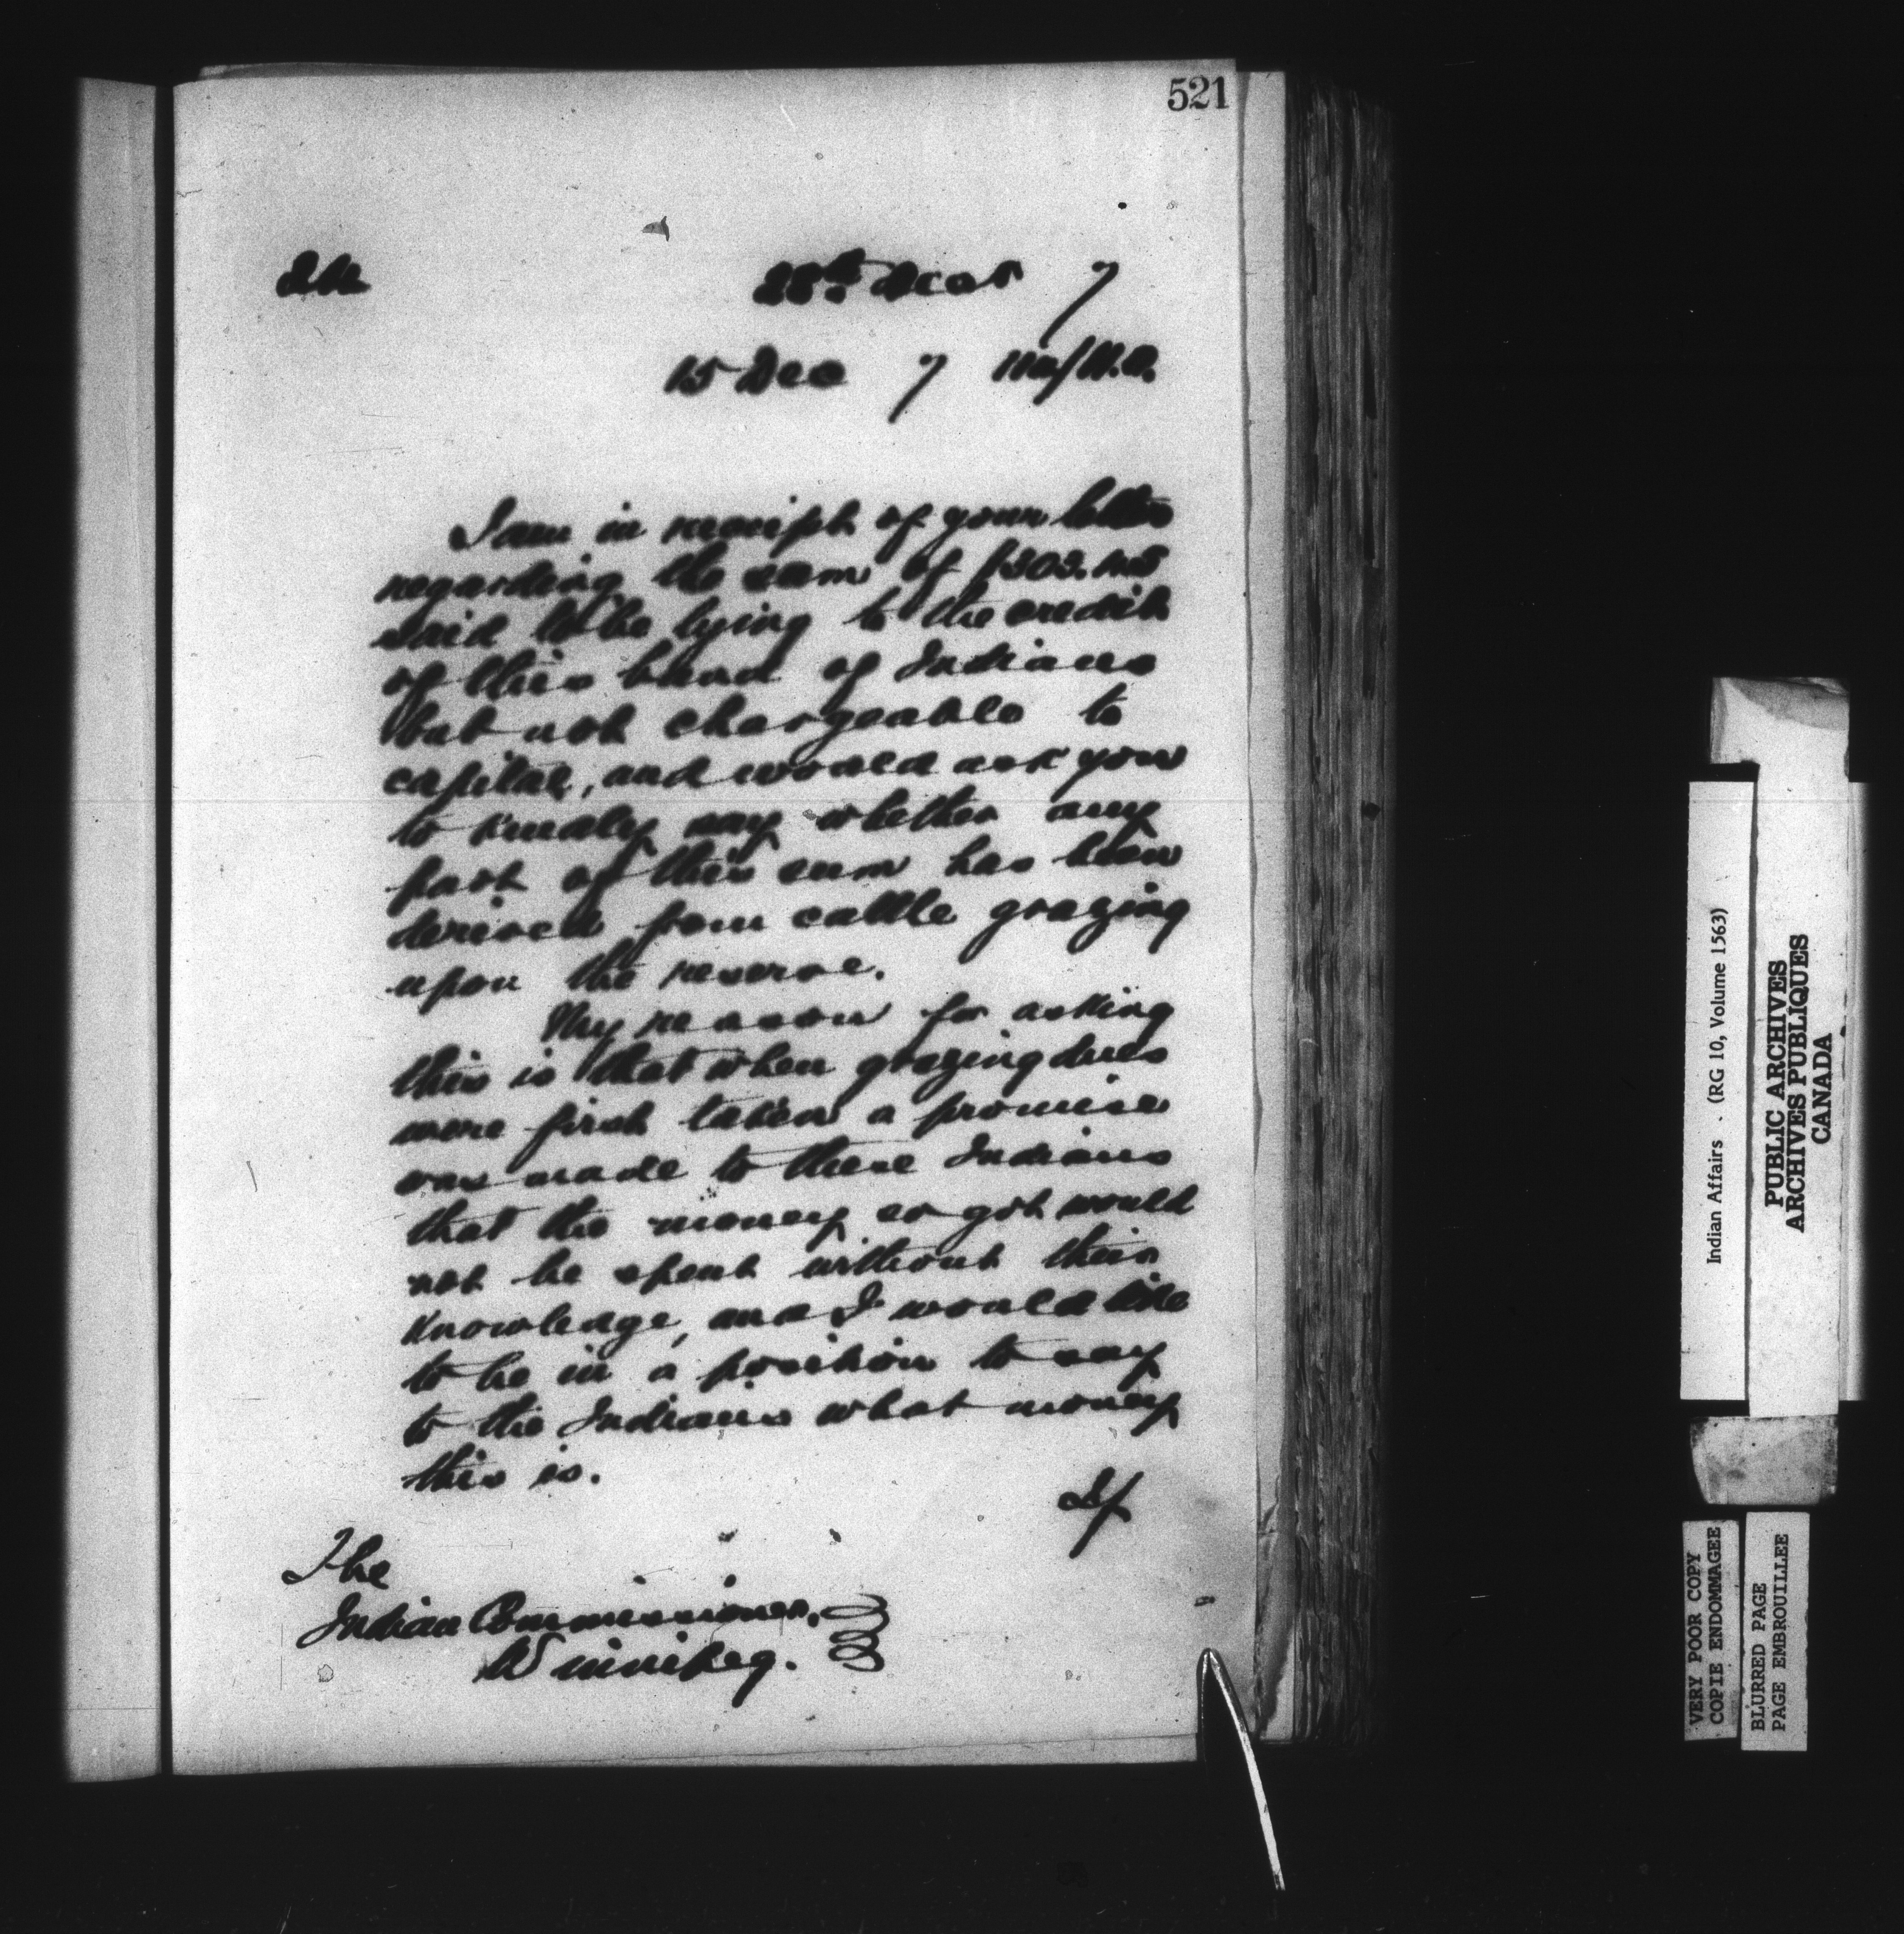 521
28th Decr 7
15 Dec 7
I am in receipt of your letter
regarding the sum of
said to be lying to the credit
of this band of Indians
but not chargeable to
capital, and would ask you
to kindly say whether any
part of this sum has been
derived from cattle grazing
upon the reserve.
My reason for asking
this is that when grazing dues
were first taken a promise
was made to these Indians
that the money so got would
not be spent without their
knowledge, and I would like
to be in a position to say
to the Indians what money
this is.
If
The
Indian Commissioner,
Winnipeg.
Indian Affairs . (RG 10, Volume 1563)
PUBLIC ARCHIVES
ARCHIVES PUBLIQUES
CANADA
VERY POOR COPY
COPIE ENDOMMAGEE
BLURRED PAGE
PAGE EMBROUILLEE